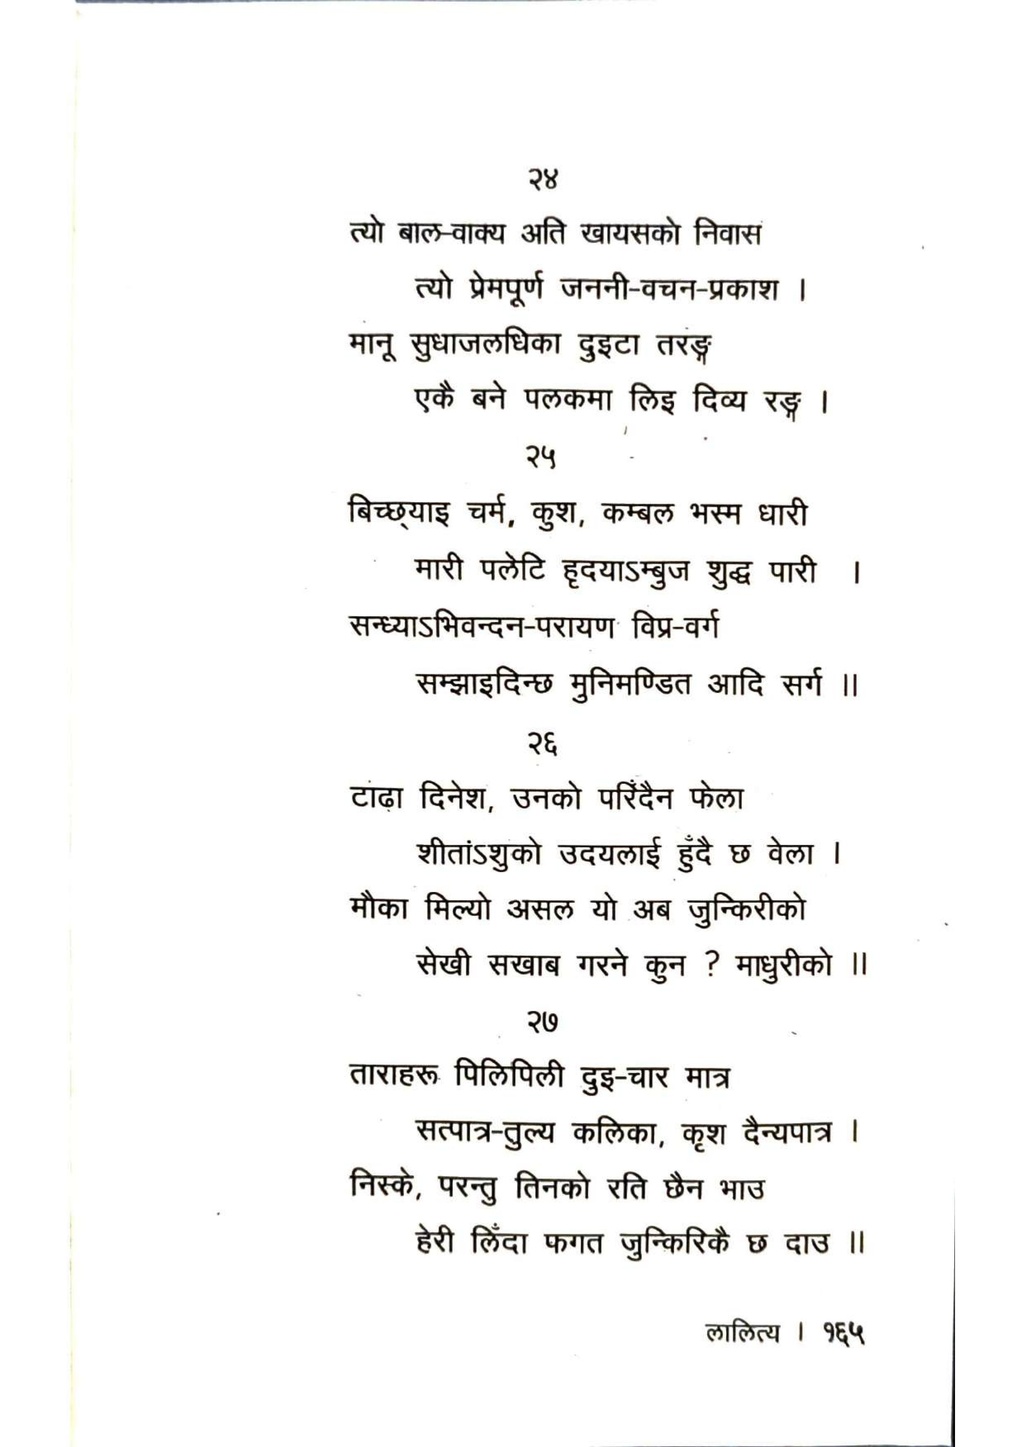 २४
त्यो बाल-वाक्य अति खायसको निवास
त्यो प्रेमपूर्ण जननी-वचन-प्रकाश ।
मानू सुधाजलधिका दुइटा तरङ्ग
एकै बने पलकमा लिइ दिव्य रङ्ग ।
२५
बिच्छ्याइ चर्म, कुश, कम्बल भस्म धारी
मारी पलेटि हृदयाऽम्बुज शुद्ध पारी ।
सन्ध्याऽभिवन्दन-परायण विप्र-वर्ग
सम्झाइदिन्छ मुनिमण्डित आदि सर्ग ॥
२६
टाढा दिनेश, उनको परिँदैन फेला
शीतांऽशुको उदयलाई हुँदै छ वेला ।
मौका मिल्यो असल यो अब जुन्किरीको
सेखी सखाब गरने कुन ? माधुरीको ॥
२७
ताराहरू पिलिपिली दुइ-चार मात्र
सत्पात्र-तुल्य कलिका, कृश दैन्यपात्र ।
निस्के, परन्तु तिनको रति छैन भाउ
हेरी लिँदा फगत जुन्किरिकै छ दाउ ॥
लालित्य । १६५